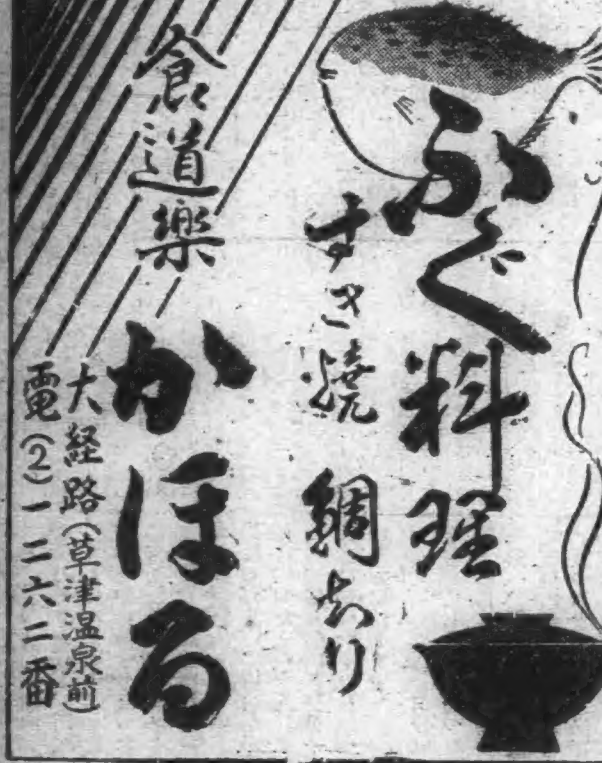 ふぐ料理
すき焼 鯛ちり
食道楽
かほる
大経路(草津温泉前)
電(2)一二六二番